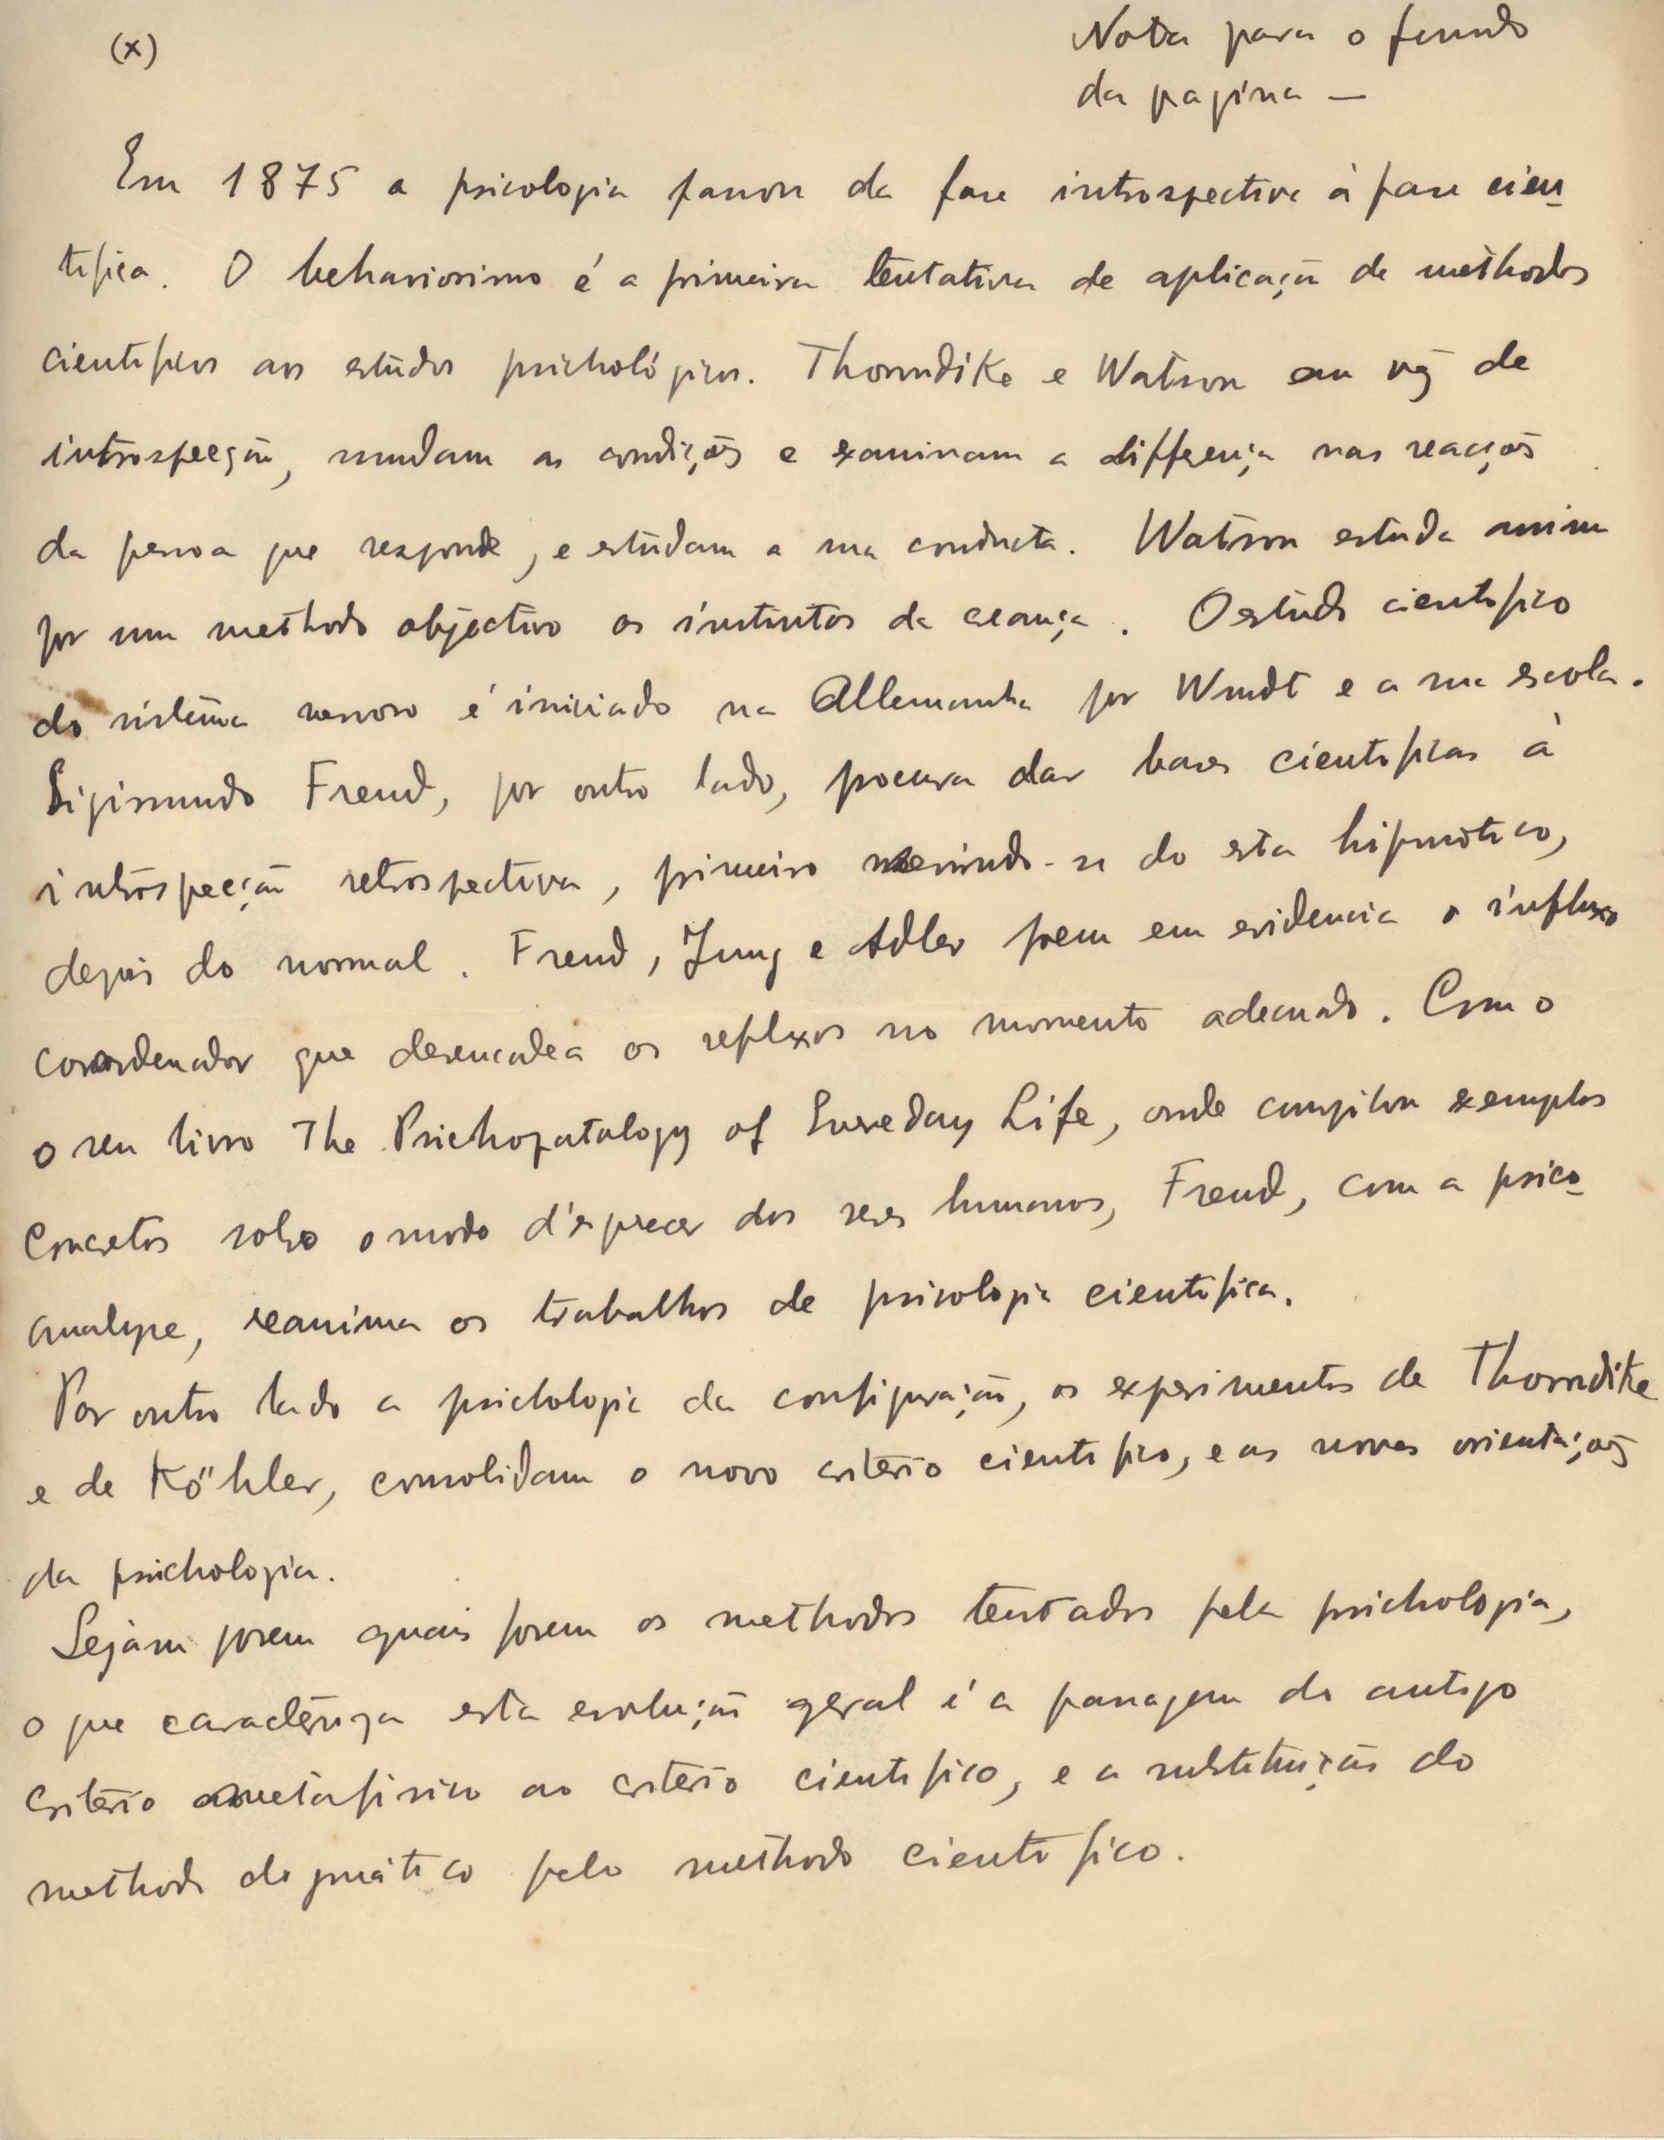 (x)
Nota para o fundo
da pagina —
Em 1875 a psicologia passou da fase introspectiva à fase cien-
tifica. O behaviorismo é a primeira tentativa de aplicação de methodos
cientificos aos estudos psichológicos. Thorndike e Watson em vez de
introspecção, mudam as condições e examinam a differença nas reacções
da pessoa que responde, e estudam a sua conducta. Watson estuda assim
por um methodo objectivo os instintos da creança. O estudo cientifico
do sistema nervoso é iniciado na Allemanha por Wundt e a sua escola.
Sigismundo Freud, por outro lado, procura dar bases cientificas à
introspecção retrospectiva, primeiro servindo-se do esta hipnotico,
depois do normal. Freud, Jung e Adler poem em evidencia o influxo
coordenador que desencadea os reflexos no momento adecuado. Com o
o seu livro The Psichopatalogy of Evereday Life, onde compilou exemplos
concretos sobre o modo d'esquecer dos seres humanos, Freud, com a psico-
analyse, reanima os trabalhos de psicologia cientifica.
Por outro lado a psichologia da configuração, os experimentos de Thorndike
e de Köhler, consolidam o novo criterio cientifico, e as novas orientações
da psichologia.
Sejam porem quais forem os methodos tentados pela psichologia,
o que caracteriza esta evolução geral é a passagem do antigo
criterio metafisico ao criterio cientifico, e a substituição do
methodo dogmático pelo methodo cientifico.